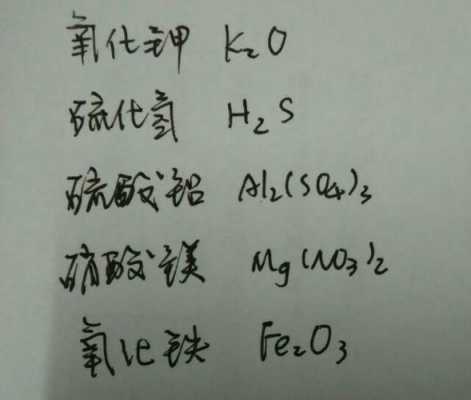 氧化钾 K₂O
硫化氢 H₂S
硫酸铝 Al₂(SO₄)₃
硝酸镁 Mg(NO₃)₂
氧化铁 Fe₂O₃